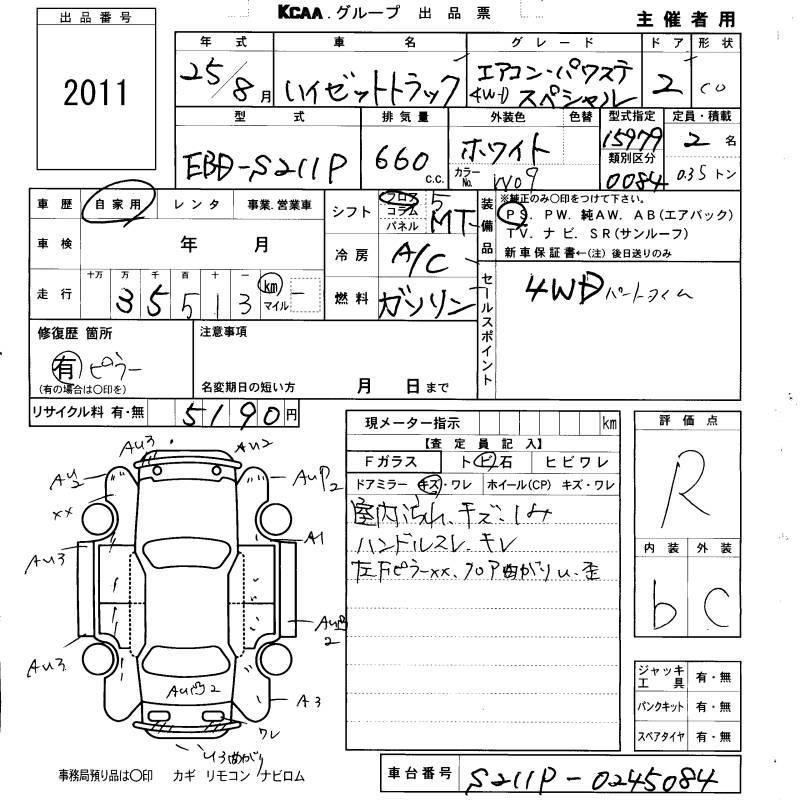 KCAA.グループ 出品票
主催者用
出品番号
2011
年式 車名 グレード ドア 形状
25/8月 ハイゼットトラック エアコン・パワステ 4WD スペシャル 2
型式 排気量 外装色 色替 型式指定 定員・積載
EBD-S211P 660 c.c. ホワイト 15979 2名
カラーNo. W09 類別区分 0084 0.35トン
車歴 自家用 レンタ 事業.営業車
シフト フロア コラム パネル 5 MT
装備品 ※純正のみ○印をつけて下さい。
PS. PW. 純AW. AB(エアバック)
TV. ナビ. SR(サンルーフ)
新車保証書←(注)後日送りのみ
車検 年 月
冷房 A/C
走行 十万 万 千 百 十 一
35513 km マイル
燃料 ガソリン
セールスポイント 4WD パートタイム
修復歴 箇所
有 ピラー
(有の場合は○印を)
注意事項
名変期日の短い方 月 日まで
リサイクル料 有・無 5190円
現メーター指示 km
【査定員記入】
Fガラス ト ビ 石 ヒビワレ
ドアミラー キズ・ワレ ホイール(CP) キズ・ワレ
室内よごれ、キズ・しみ
ハンドルスレ、キレ
左Fピラーxx、フロア曲がりu、歪
評価点
R
内装 外装
b C
ジャッキ工具 有・無
パンクキット 有・無
スペアタイヤ 有・無
AU3
AU2
AU2
AUP2
xx
A1
AU3
AU3
AU凹2
AU凹2
A3
ワレ
U3曲がり
事務局預り品は○印 カギ リモコン ナビロム
車台番号 S211P-0245084